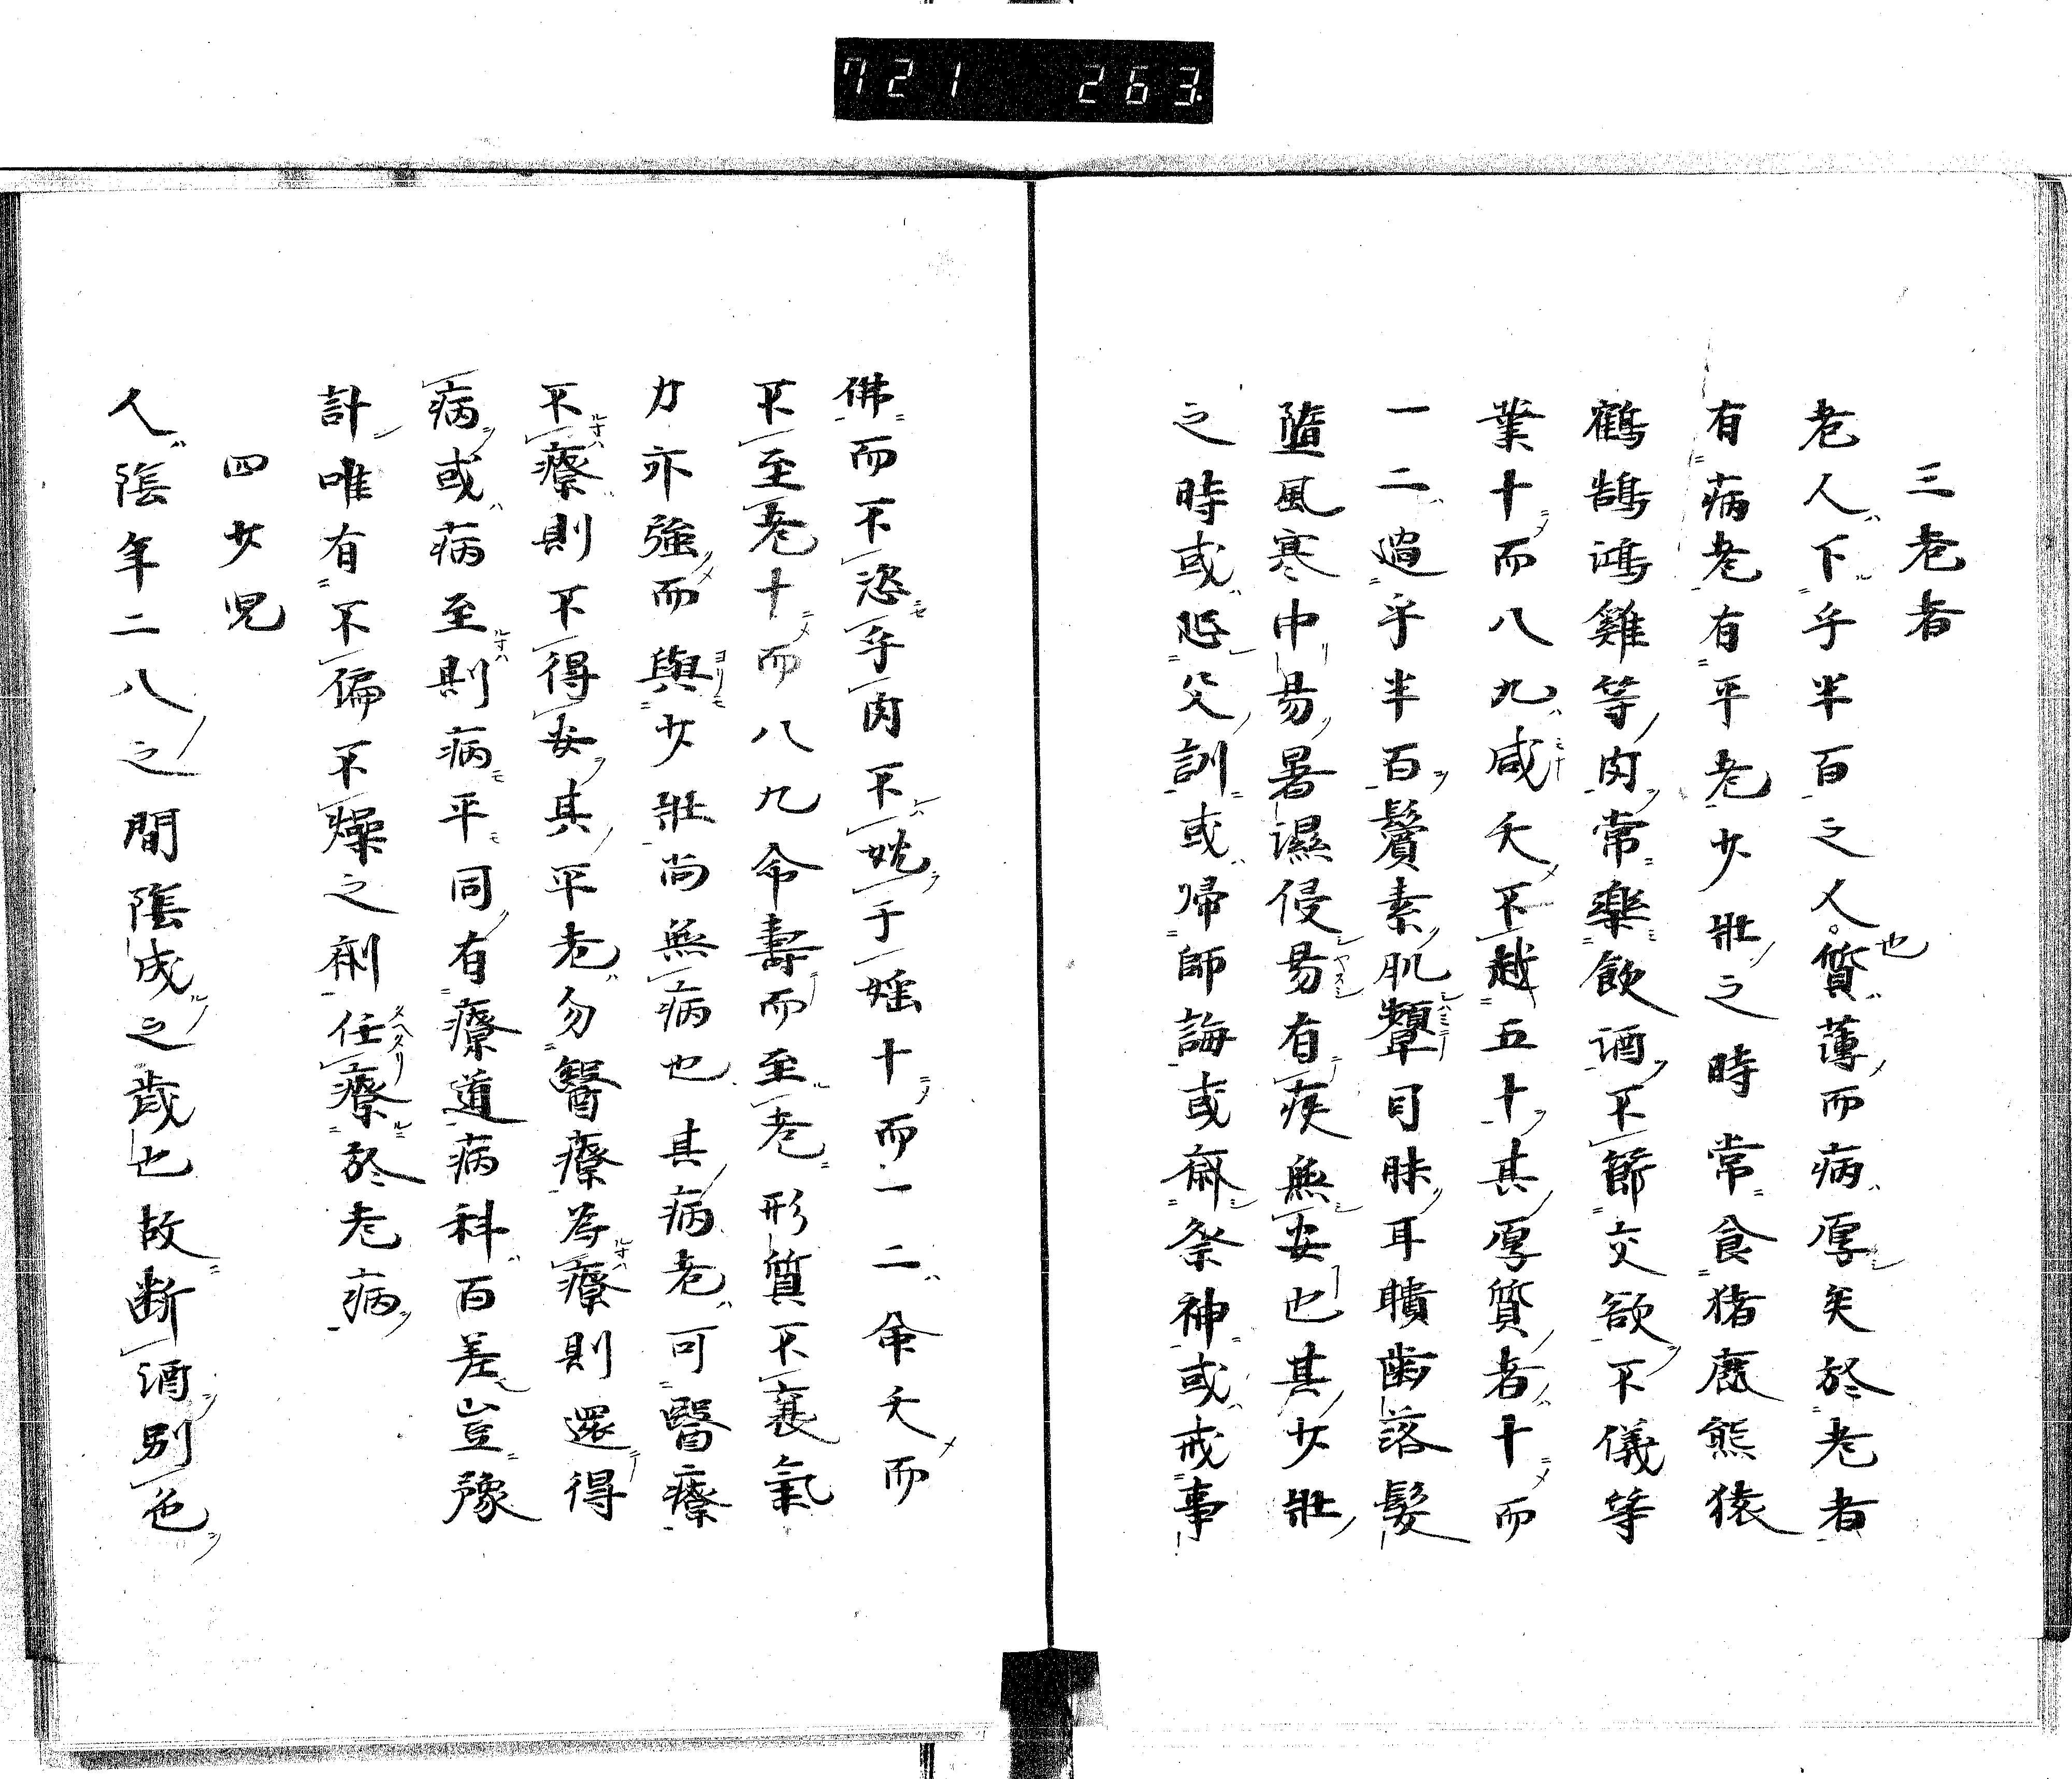 721 263
三老者
老人下乎半百之人也質薄而病厚矣於老者
有病老有平老少壯之時常食猪鹿熊猿
鶴鵠鴻雞等肉常樂飲酒不節交欲不儀等
業十而八九咸夭不越五十其厚質者十而
一二過乎半百鬢素肌顰目昧耳聵齒落髮
墮風寒中易暑濕侵易有疾無安也其少壯
之時或延父訓或歸師誨或齋祭神或戒事
佛而不恣乎肉不婬于婬十而一二命夭而
不至老十而八九命壽而至老形質不衰氣
力亦強而與少壯尚無病也其病老可醫療
不療則不得安其平老勿醫療為療則還得
病或病至則病平同有療道病科百差豈豫
計唯有不偏不燥之劑任療於老病
四少兒
人陰年二八之間陰成之歲也故断酒別色